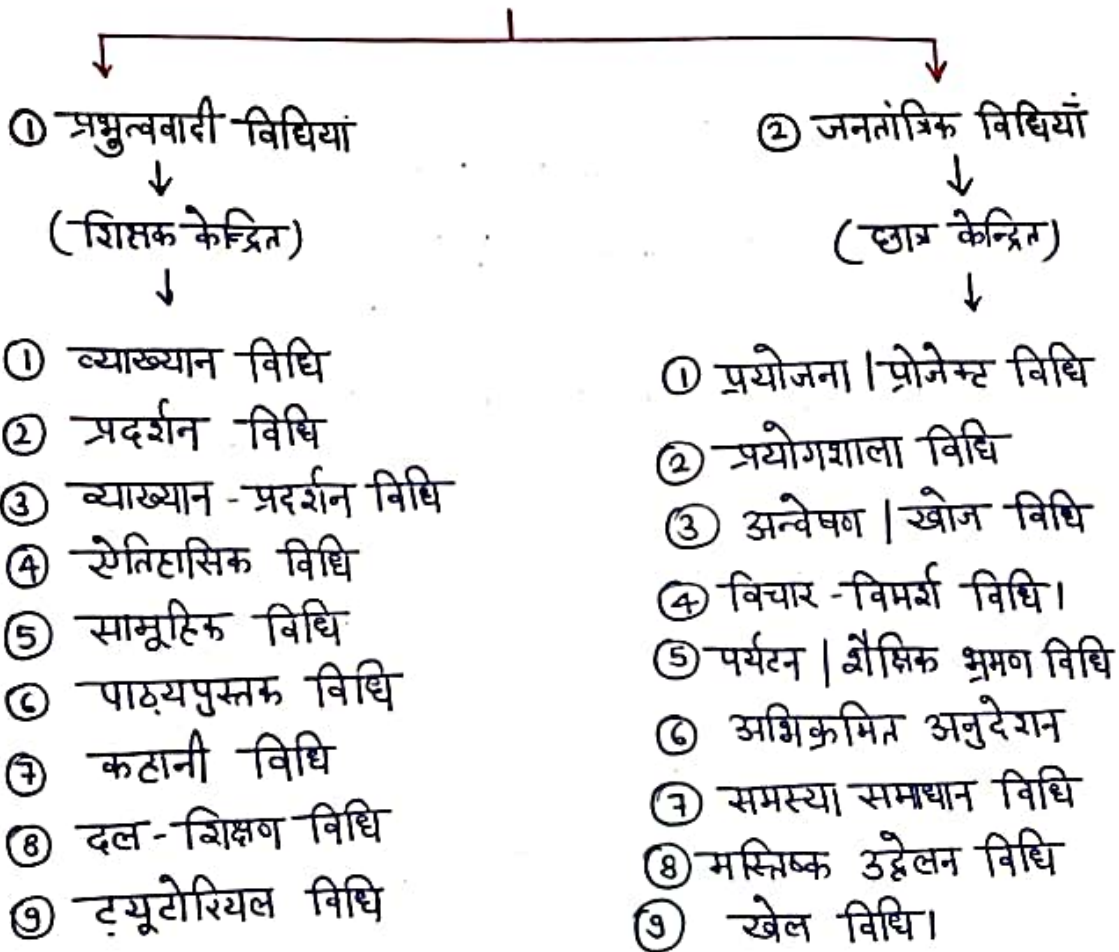 ① प्रभुत्ववादी विधियां
↓
(शिक्षक केन्द्रित)
↓
① व्याख्यान विधि
② प्रदर्शन विधि
③ व्याख्यान - प्रदर्शन विधि
④ ऐतिहासिक विधि
⑤ सामूहिक विधि
⑥ पाठ्यपुस्तक विधि
⑦ कहानी विधि
⑧ दल - शिक्षण विधि
⑨ ट्यूटोरियल विधि
② जनतांत्रिक विधियाँ
↓
(छात्र केन्द्रित)
↓
① प्रयोजना | प्रोजेक्ट विधि
② प्रयोगशाला विधि
③ अन्वेषण | खोज विधि
④ विचार - विमर्श विधि।
⑤ पर्यटन | शैक्षिक भ्रमण विधि
⑥ अभिक्रमित अनुदेशन
⑦ समस्या समाधान विधि
⑧ मस्तिष्क उद्वेलन विधि
⑨ खेल विधि।